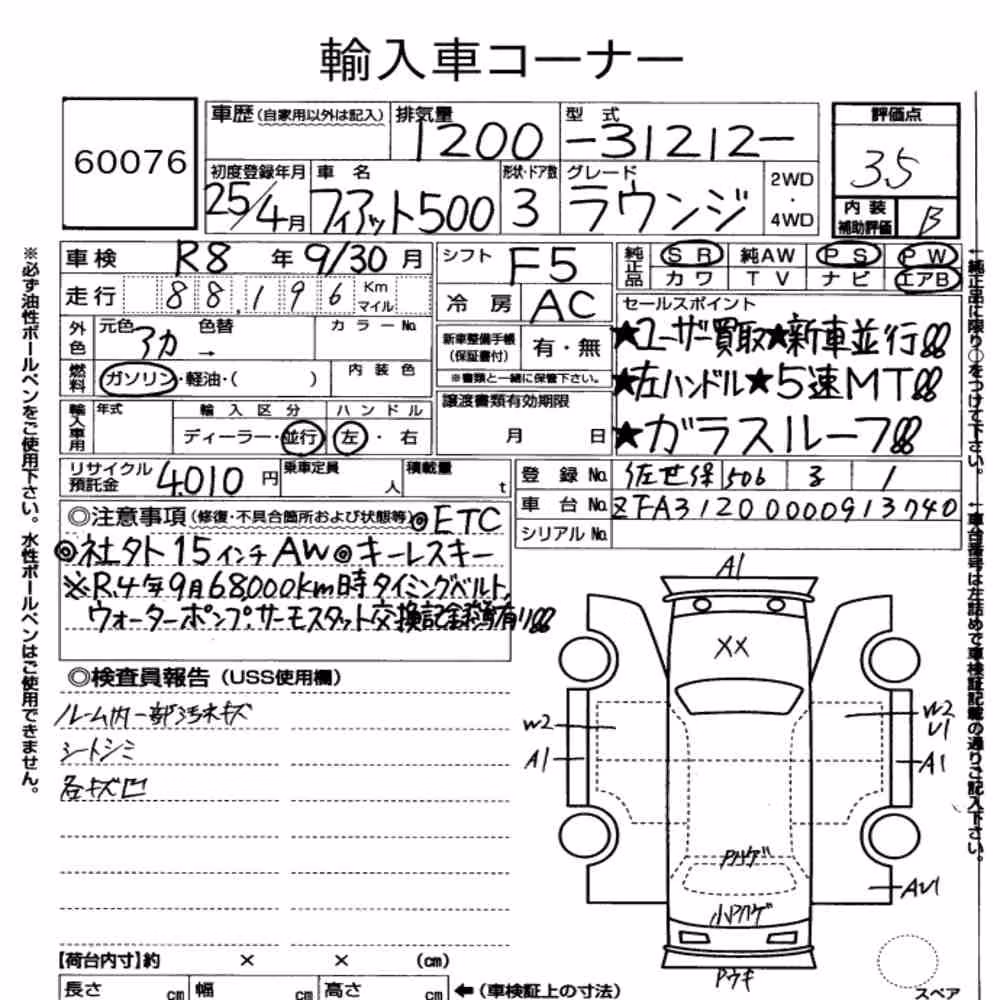 輸入車コーナー
60076
車歴 (自家用以外は記入)
排気量
1200
型式
-31212-
評価点
3.5
初度登録年月
25/4月
車名
フィアット500
形状・ドア数
3
グレード
ラウンジ
2WD
・
4WD
内装
補助評価
B
車検 R8年9/30月
走行 88,196 Km マイル
外色
元色
アカ
色替
→
カラーNo.
燃料
ガソリン・軽油・( )
内装色
輸入車用
年式
輸入区分
ディーラー・並行
ハンドル
左・右
シフト F5
冷房 AC
新車整備手帳
(保証書付)
有・無
※書類と一緒に保管下さい。
譲渡書類有効期限
月 日
純正品
SR 純AW PS PW
カワ TV ナビ エアB
セールスポイント
★ユーザー買取★新車並行!!
★左ハンドル★5速MT!!
★ガラスルーフ!!
リサイクル
預託金
4,010円
乗車定員
人
積載量
t
登録No. 佐世保 506 る 1
車台No. ZFA31200000913740
シリアルNo.
◎注意事項(修復・不具合箇所および状態等)◎ETC
◎社外15インチAW◎キーレスキー
※R.4年9月68,000km時タイミングベルト,
ウォーターポンプ.サーモスタット交換記録簿有り!!
◎検査員報告(USS使用欄)
ルーム内一部汚れキズ
シートシミ
各キズ凹
A1
XX
W2
A1
W2
U1
A1
AU1
Pハゲ
小Pハゲ
Pウキ
【荷台内寸】約 × × (cm)
長さ cm
幅 cm
高さ cm
←(車検証上の寸法)
スペア
※必ず油性ボールペンをご使用下さい。水性ボールペンはご使用できません。
↑純正品に限り○をつけて下さい。
↑車台番号は左詰めで車検証記載の通りご記入下さい。